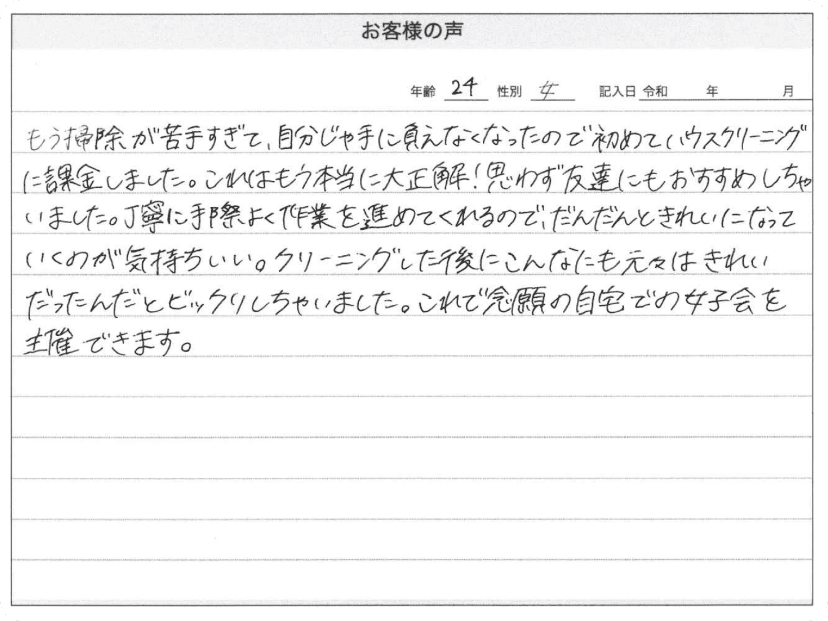 お客様の声
年齢 24 性別 女 記入日 令和 年 月
もう掃除が苦手すぎて、自分じゃ手に負えなくなったので初めてハウスクリーニング
に課金しました。これはもう本当に大正解！思わず友達にもおすすめしちゃ
いました。丁寧に手際よく作業を進めてくれるので、だんだんときれいになって
いくのが気持ちいい。クリーニングした後にこんなにも元々はきれい
だったんだとビックリしちゃいました。これで念願の自宅での女子会を
主催できます。